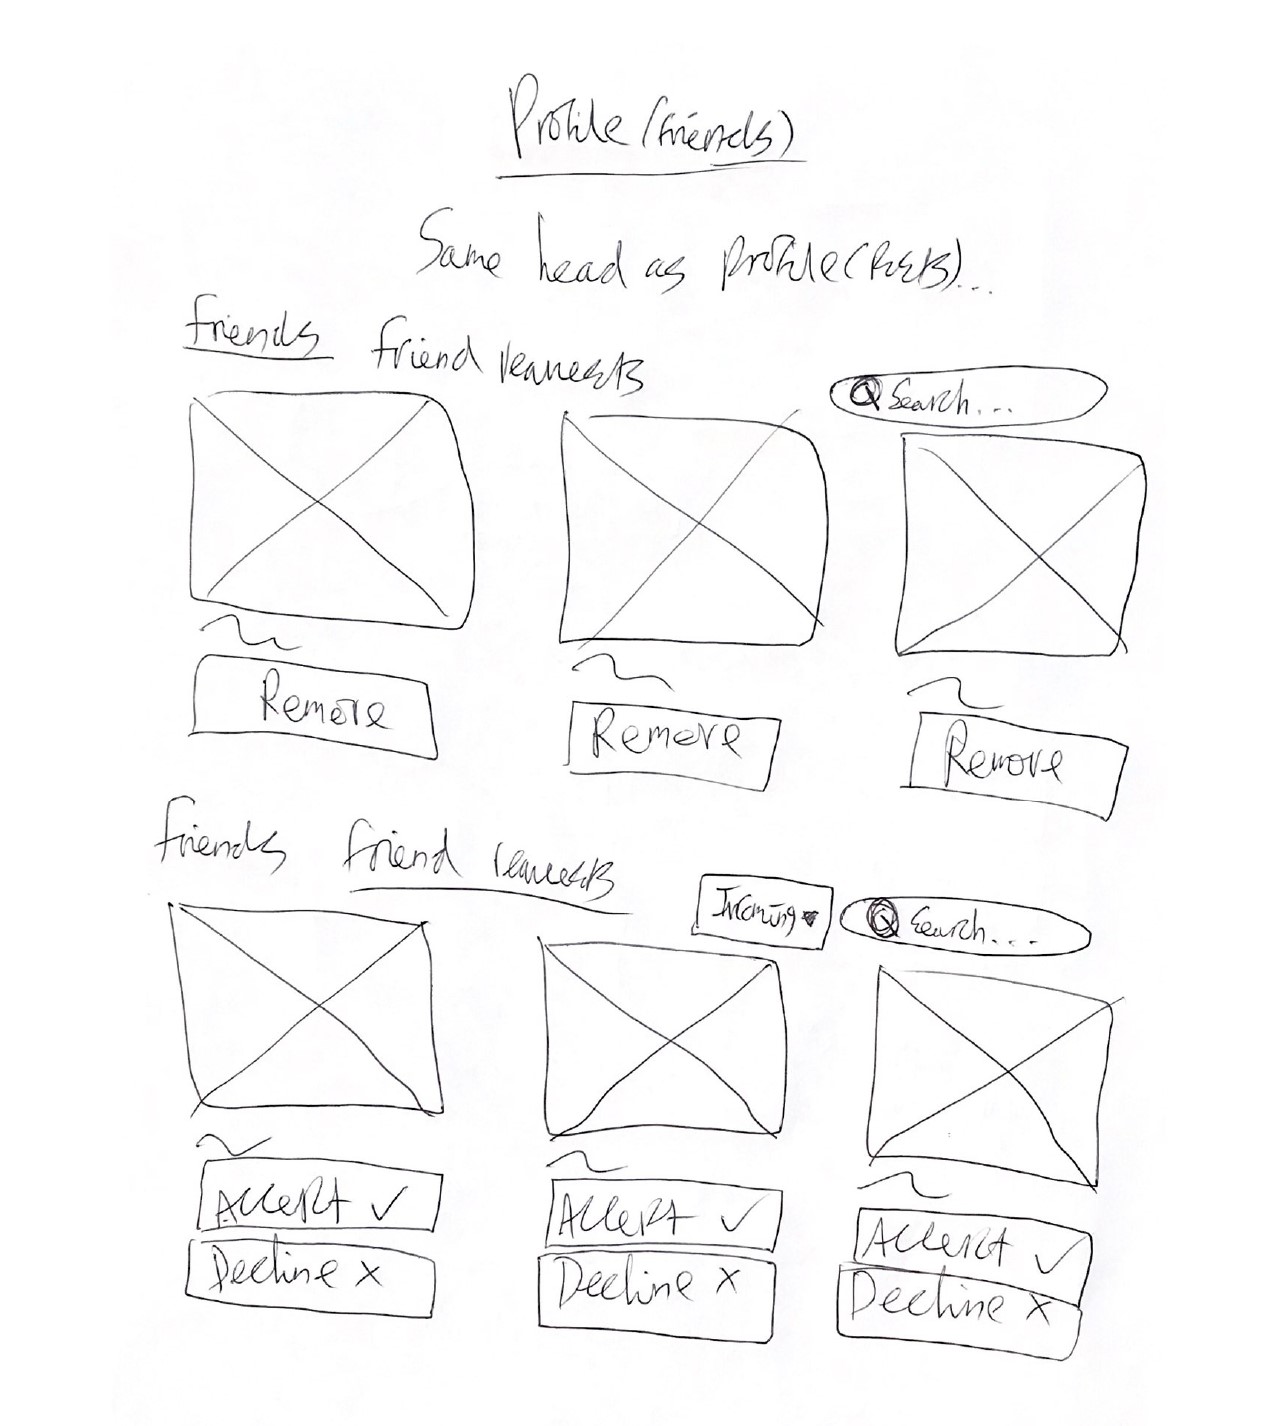 Profile (friends)
Same head as profile( )...
friends friend requests
Search...
Remove Remove Remove
friends friend requests
Incoming Search....
Accept ✓ Accept ✓ Accept ✓
Decline X Decline X Decline X